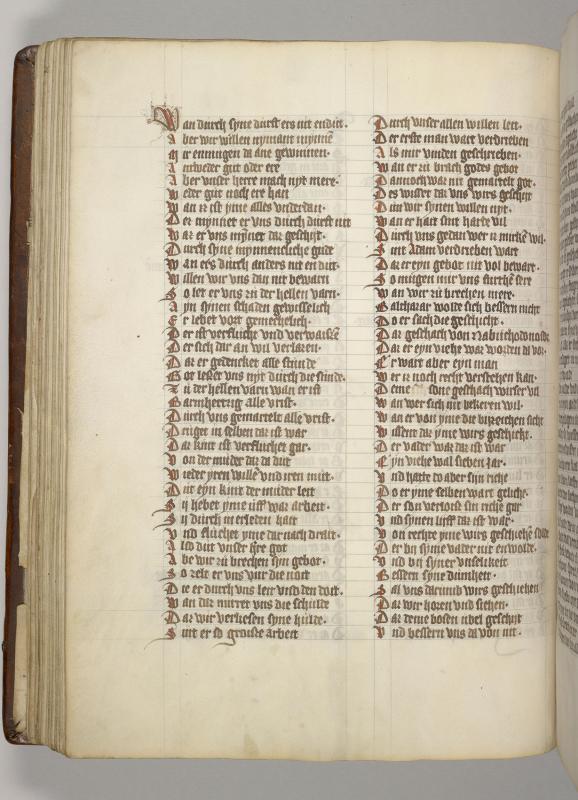 Wan durch syne durst ers nit endut.
Aber wir willen nymant mynnē
Mir enmugen da ane gewinnen.
Antweder gut oder ere
Aber vnser herre mach nyt mere.
Weder gut noch ere han
Wan iz ist yme alles vnderdan.
Der mynnet er vns durch durst nit
War er vns mynnet daz geschiht.
Durch syne mynnencliche gude
Wan ers durch anders nit en dut.
Willen wir vns dan nit bewarn
So let er vns zu der hellen varn.
Ayn synen schaden gewisselich
Er lebet vort gemechelich.
Der ist verflucht vnd verwaisēt
Der sich dar an wil verlazen.
Daz er gedencket alle stunde
Got lesset vns nyt durch die sunde.
Zu der hellen varn wan er ist
Barmhertzig alle vrist.
Durch vns gemartelt alle vrist.
Druget in selben daz ist war
Daz kint ist verfluchet gar.
Von der muder daz da dut
Wieder yren willē vnd iren mut.
Dut eyn kint der muder leit
Sij hebet yme uff war arbeit.
Sij durch in erleden hait
Vnd fluchet yme dar nach drait.
Also dut vnser hre got
Abe wir zu brechen syn gebot.
So zelt er vns vur die noit
Die er durch vns leit vnd den doit.
Wan daz nutzet vns die schulde
Daz wir verliesen syne hulde.
Sint er so groisse arbeit
Durch vnser allen willen leit.
Der erste man wart verdrieben
Als mir vinden geschrieben.
Wan er zu brach godes gebot
Dannoch was nit gemartelt got.
Des wisset daz vns wirs geschiht
Dun wir synen willen nyt.
Wan er hait sint harte vil
Durch vns gedan wer iz mirkē wil.
Sint Adam verdrieben wart
Daz er eyn gebot nit vol bewart.
So mugen mir vns furchtē sere
Wan wir zu brechen mere.
Balthazar wolde sich bessern nicht
Do er sach die geschicht.
Daz geschach von Nabuchodonosor
Daz er eyn viehe was worden da vor.
Er wart aber eyn man
Wer iz noch recht verstehen kan.
Deme sone geschach wirser vil
Wan wer sich nit bekeren wil.
Wan er von yme die bizeichen sicht
Wissent daz yme wirs geschicht.
Der vader was daz ist war
Eyn viehe wol sieben jar.
Vnd hatte do aber syn riche
Do er yme selben wart geliche.
Der son verlois sin riche gar
Vnd synen liff daz ist war.
Von rechte yme wirs geschiehē solde
Der bij syme vader nit enwolde.
Vnd bij syner vnselikeit
Bessern syne dumheit.
Sal vns darumb wirs geschiehen
Daz wir horen vnd siehen.
Daz deme bosen ubel geschiht
Vnd bessern vns da von nit.